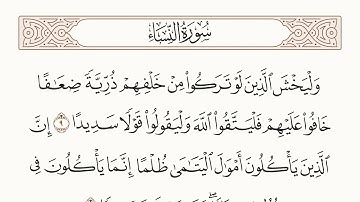 سُورَةُ النِّسَاءِ
وَلْيَخْشَ الَّذِينَ لَوْ تَرَكُوا مِنْ خَلْفِهِمْ ذُرِّيَّةً ضِعَافًا
خَافُوا عَلَيْهِمْ فَلْيَتَّقُوا اللَّهَ وَلْيَقُولُوا قَوْلًا سَدِيدًا ٩ إِنَّ
الَّذِينَ يَأْكُلُونَ أَمْوَالَ الْيَتَامَىٰ ظُلْمًا إِنَّمَا يَأْكُلُونَ فِي